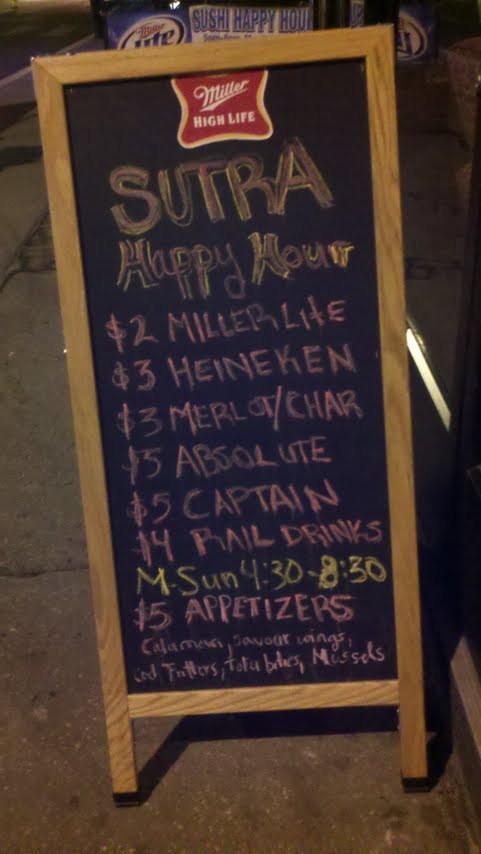 Miller
Lite
SUSHI HAPPY HOUR
Miller
HIGH LIFE
SUTRA
Happy Hour
$2 MILLER LITE
$3 HEINEKEN
$3 MERLOT/CHAR
$5 ABSOLUTE
$5 CAPTAIN
$4 RAIL DRINKS
M-Sun 4:30-8:30
$5 APPETIZERS
Calamari, Savour wings,
Cod Fritters, Tofu bites, Mussels